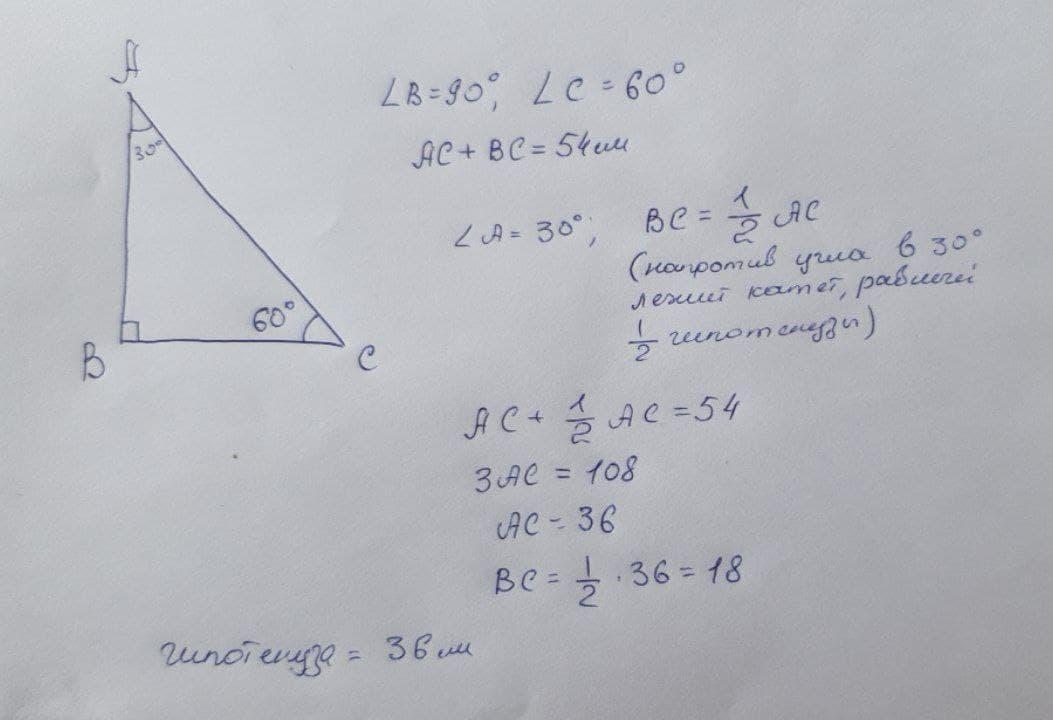 A
30°
60°
B
C
∠B=90°, ∠C=60°
AC + BC = 54см
∠A= 30°; BC = 1/2 AC
(напротив угла в 30°
лежит катет, равный
1/2 гипотенузы)
AC + 1/2 AC = 54
3AC = 108
AC = 36
BC = 1/2 · 36 = 18
гипотенуза = 36 см